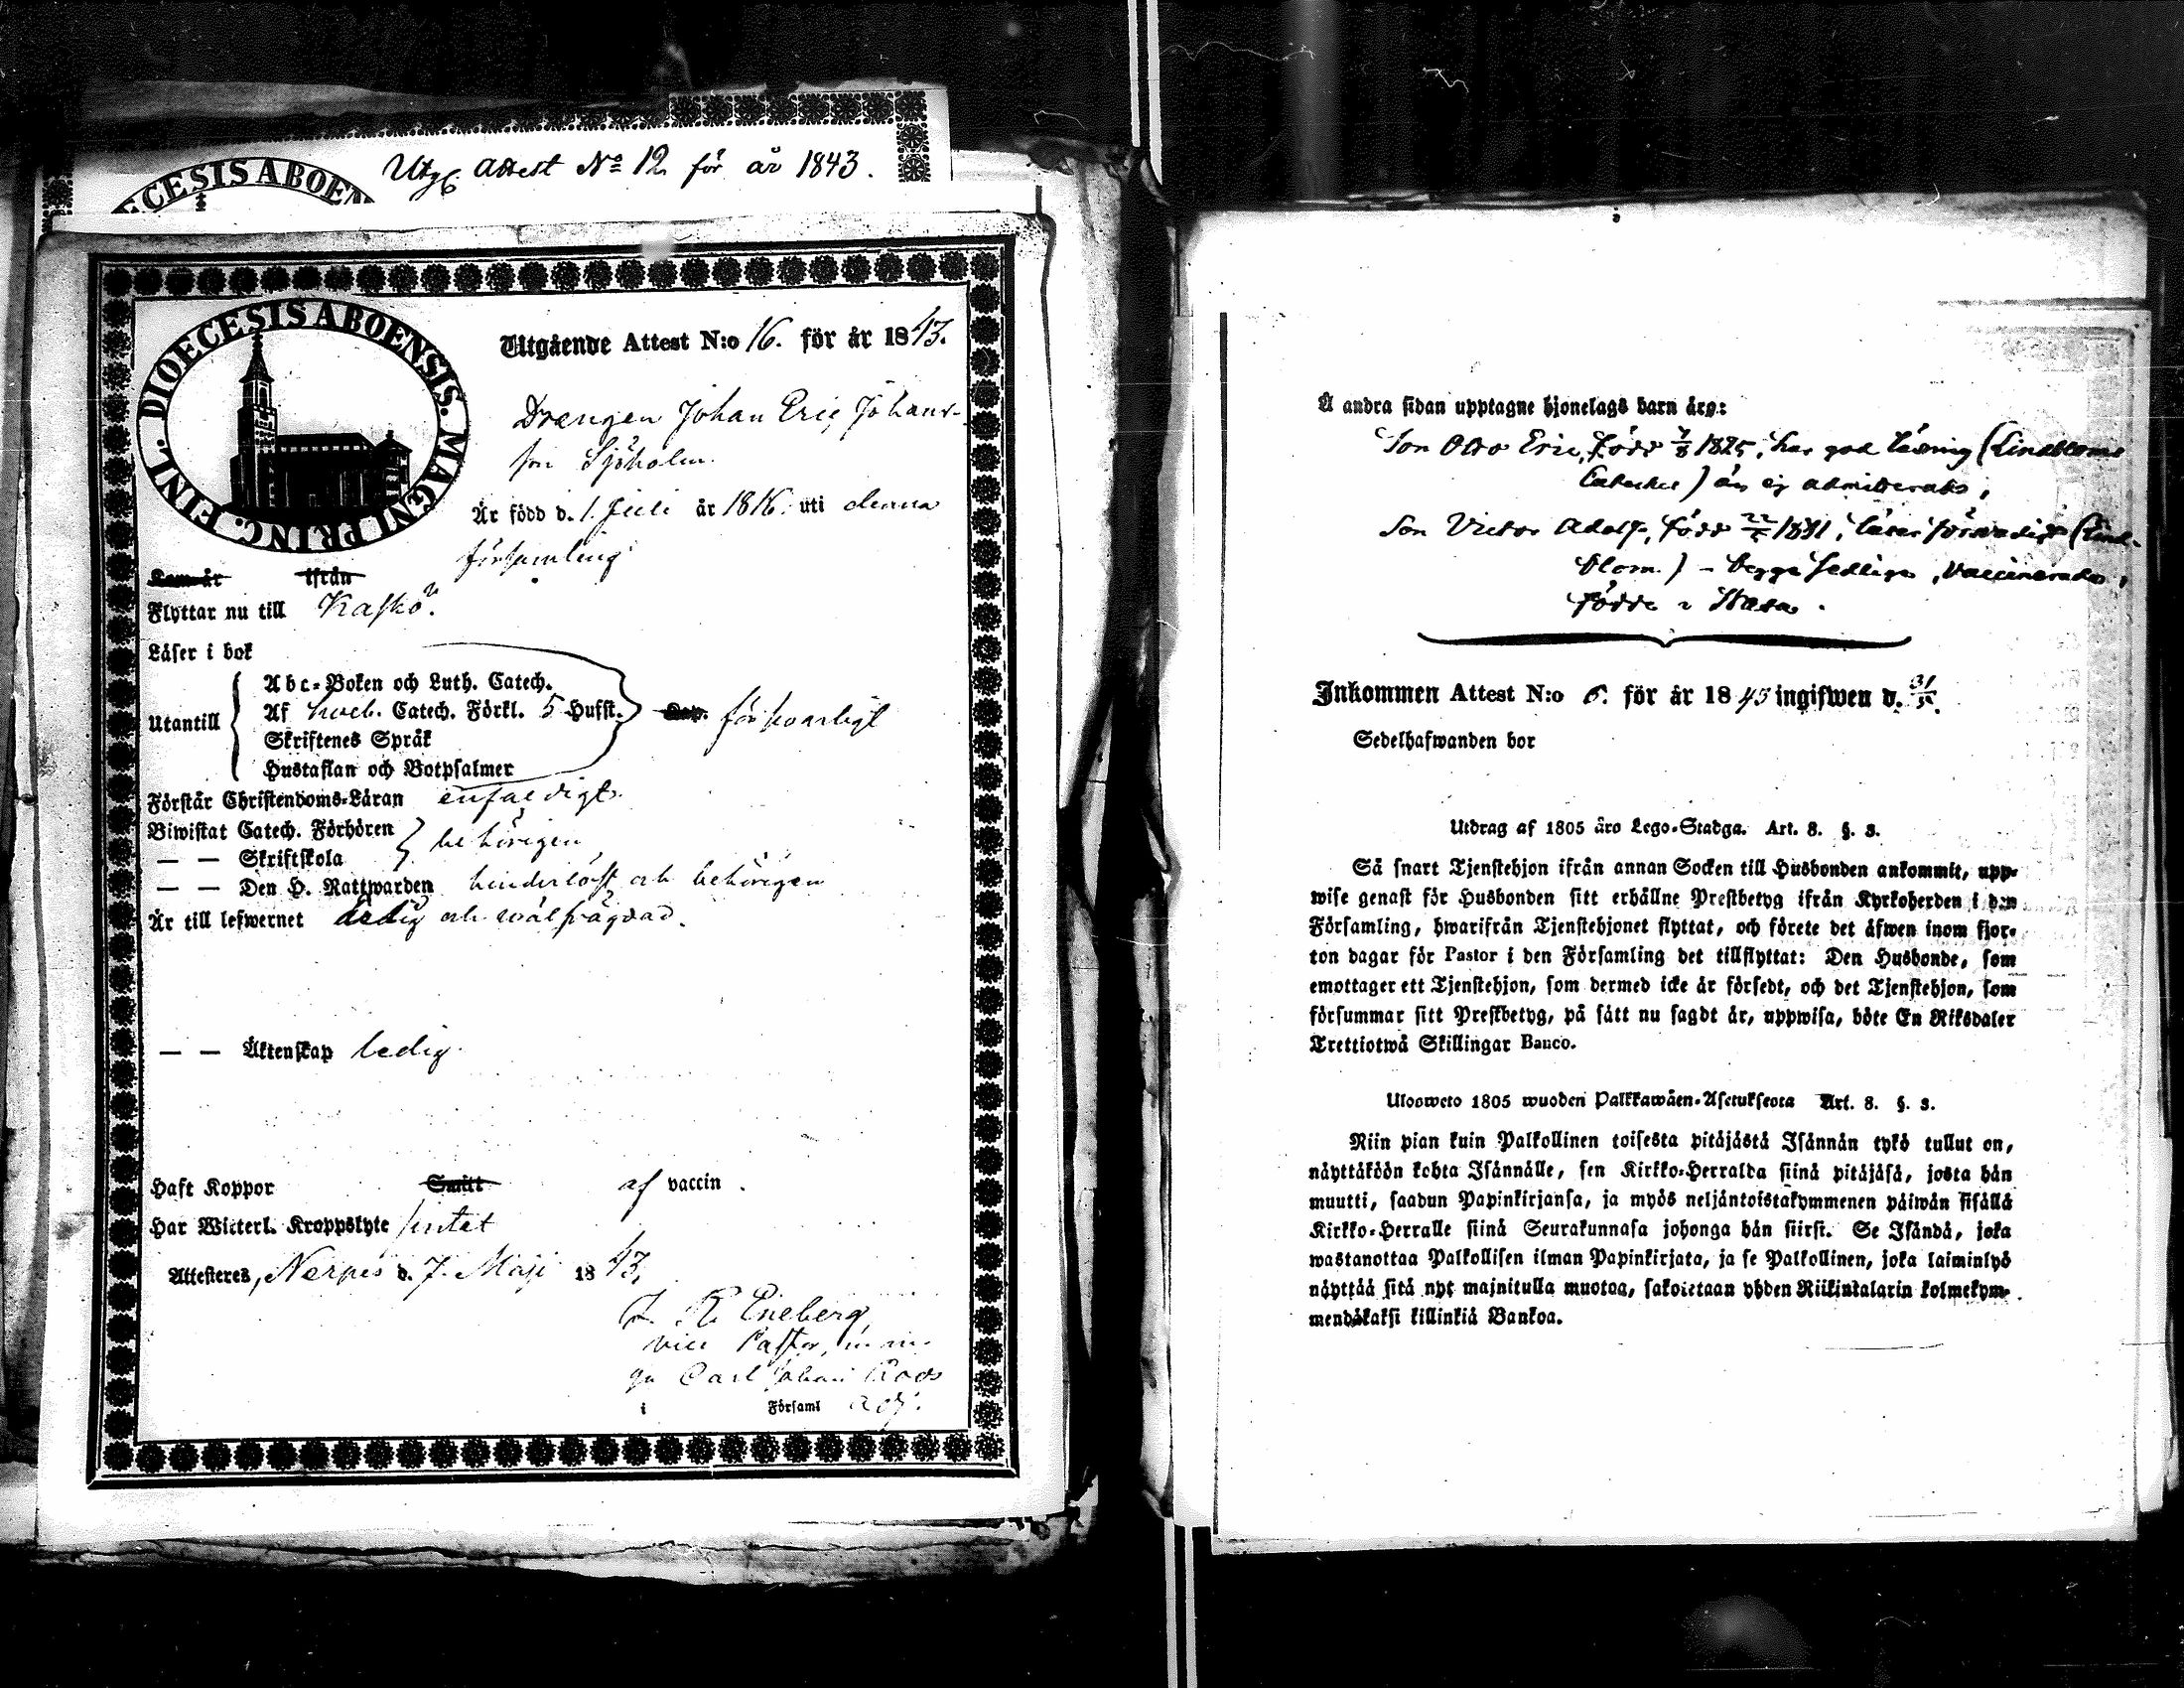 Utg. Attest No 12 för år 1843.
ECESIS ABOEN
DIOECESIS ABOENSIS. MAGNI PRINC. FINL.
Utgående Attest N:o 16. för år 1843.
Drengen Johan Eric Johans-
son Sjöholm
Är född d. 1. Juli år 1816. uti denna
församling
Kom år ifrån
Flyttar nu till Kaskö.
Läser i bok
Abc-Boken och Luth. Catech.
Utantill Af Catech. Förkl. 5 Hufst. försvarligt
Skriftenes Språk
Hustaflan och Botpsalmer
Förstår Christendoms-Läran enfaldigt
Biwistat Catech. Förhören
— — Skriftskola behörigen
— — Den H. Nattwarden hinderlöst och behörigen
Är till lefwernet ärlig och wälfrägdad.
— — Äktenskap ledig.
Haft Koppor Smitt af vaccin.
Har Witterl. Kroppslyte intet
Attesteres, Nerpes d. 7. Maji 1843.
Eneberg
vice Pastor,
Carl Johan Roos
i Församl adj.
Å andra sidan upptagne hjonelags barn äro:
Son Otto Eric, född 1825, har god läsning (Lindbloms
Cateches) än ej admitterats,
Son Victor Adolf, född 1831, läser försvarligt (Lind-
blom.) – begge sedliga, vaccinerade,
födde i Wasa.
Inkommen Attest N:o 6. för år 1843 ingifwen d. 31/5.
Sedelhafwanden bor
Utdrag af 1805 års Lego-Stadga. Art. 8. §. 3.
Så snart Tjenstehjon ifrån annan Socken till Husbonden ankommit, upp-
wise genast för Husbonden sitt erhållne Prestbetyg ifrån Kyrkoherden i den
Församling, hwarifrån Tjenstehjonet flyttat, och förete det äfwen inom fjor-
ton dagar för Pastor i den Församling det tillflyttat: Den Husbonde, som
emottager ett Tjenstehjon, som dermed icke är försedt, och det Tjenstehjon, som
försummar sitt Prestbetyg, på sätt nu sagdt är, uppwisa, böte En Riksdaler
Trettiotwå Skillingar Banco.
Uloswetо 1805 wuoden Palkkawäen-Asetuksesta Art. 8. §. 3.
Niin pian kuin Palkollinen toisesta pitäjästä Isännän tykö tullut on,
näyttäköön kohta Isännälle, sen Kirkko-Herralta siinä pitäjäsä, josta hän
muutti, saadun Papinkirjansa, ja myös neljäntoistakymmenen päiwän sisällä
Kirkko-Herralle siinä Seurakunnasa johonga hän siirsi. Se Isändä, joka
wastanottaa Palkollisen ilman Papinkirjata, ja se Palkollinen, joka laiminlyö
näyttää sitä nyt mainitulla muotoa, sakoitetaan yhden Riikintalarin kolmekym-
mendäkaksi killinkiä Bankoa.